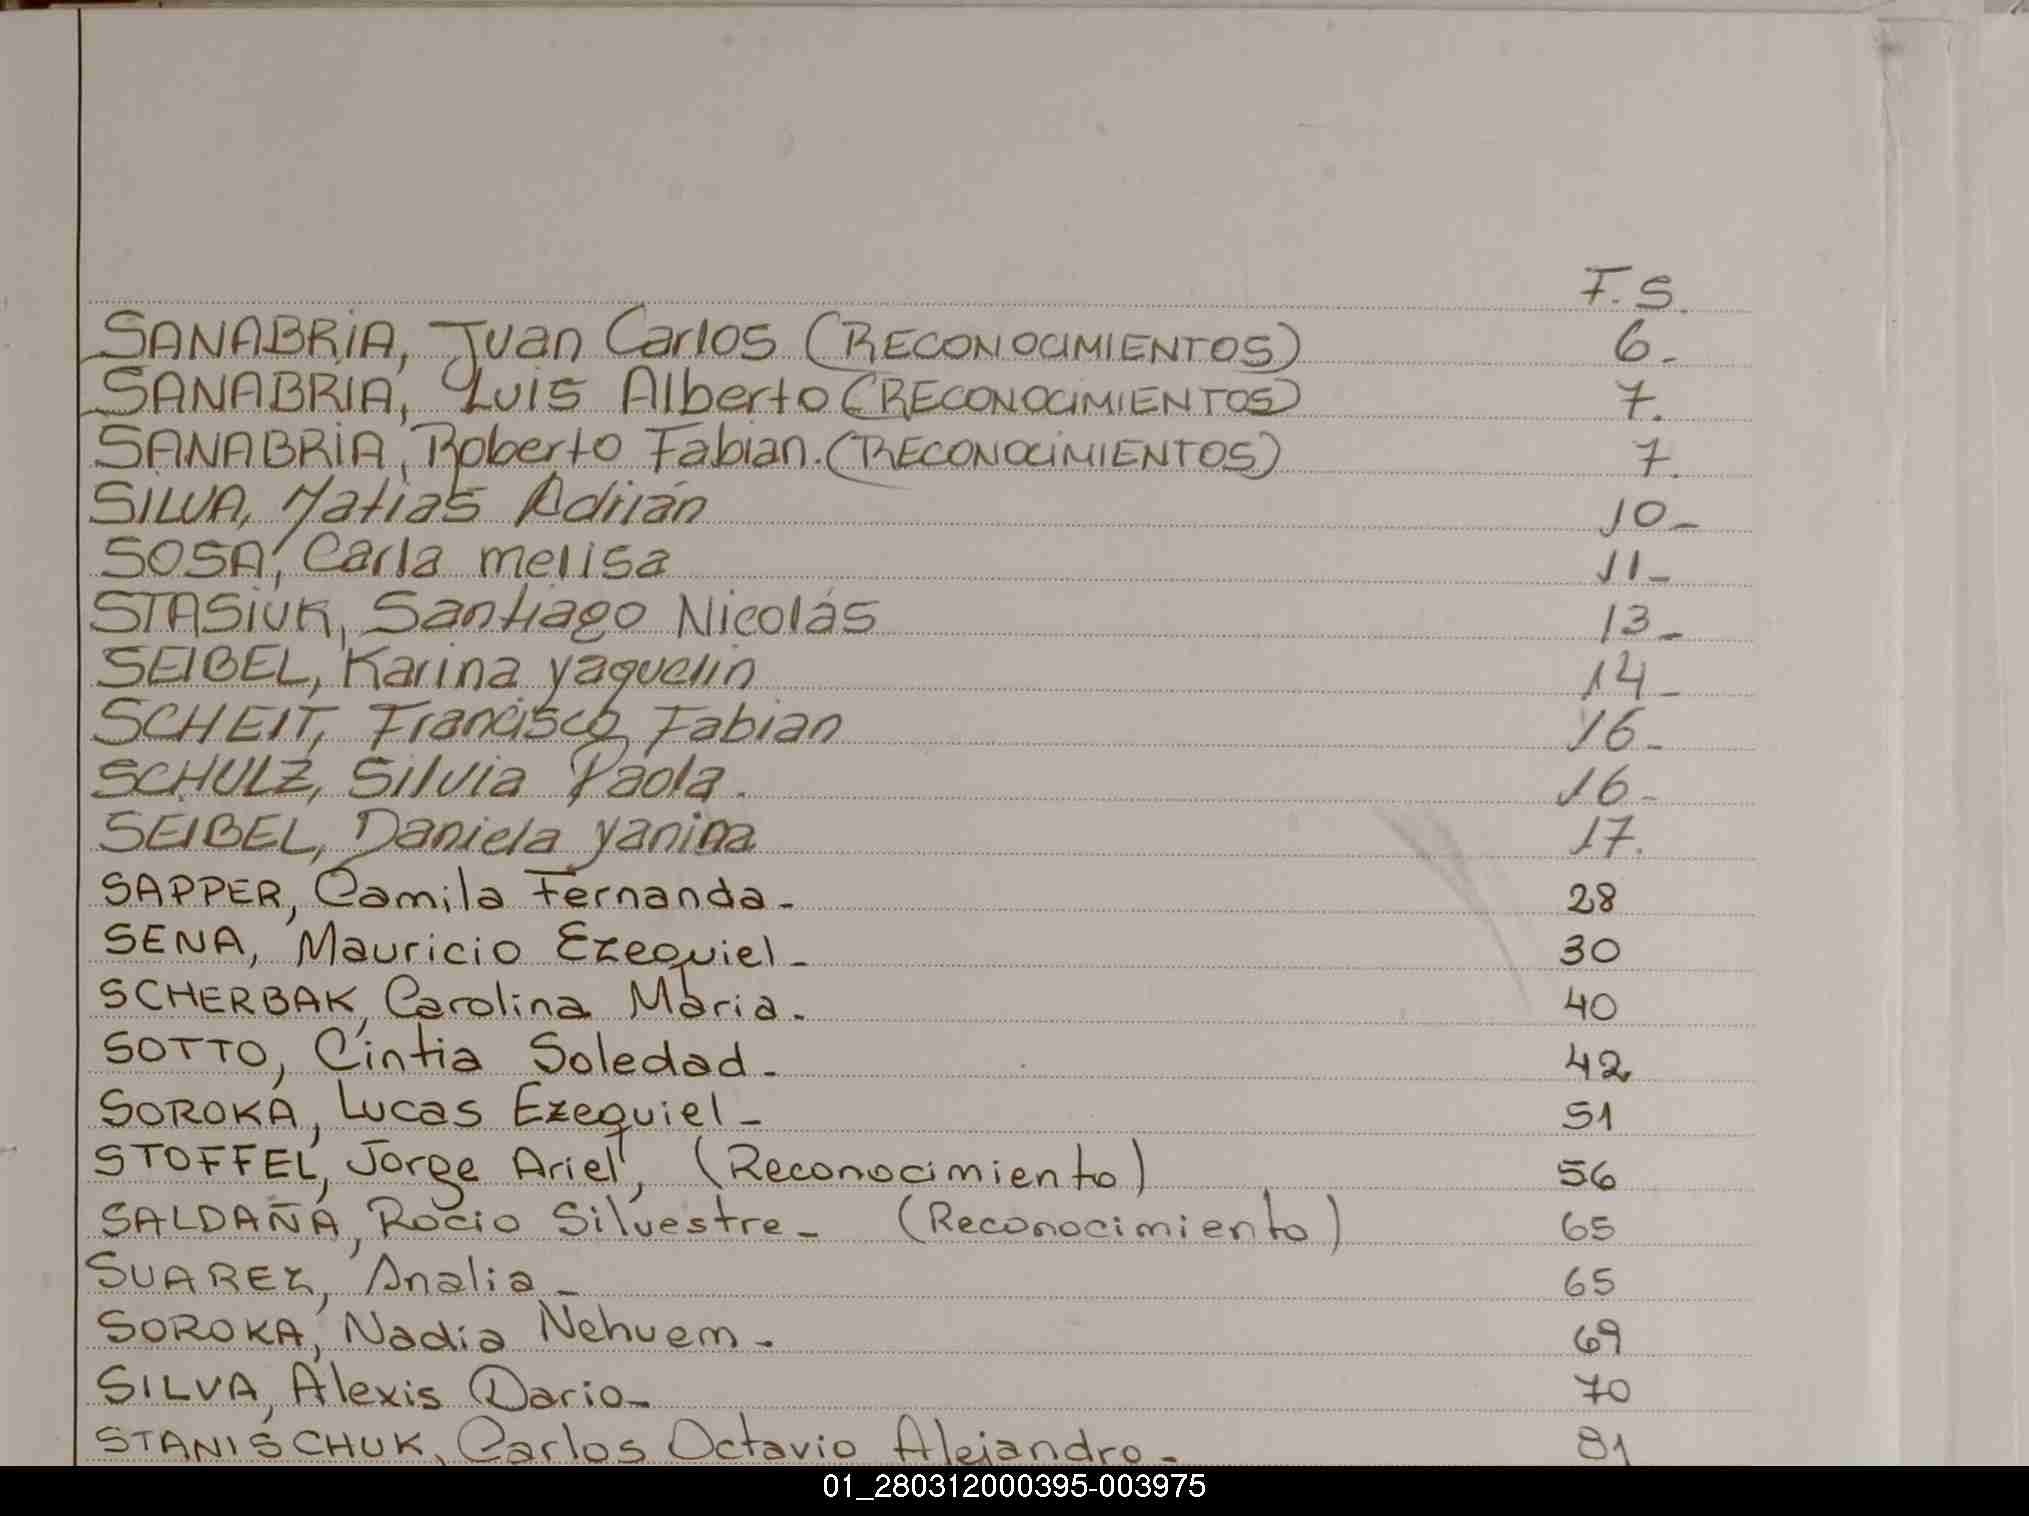 F. S.
SANABRIA, Juan Carlos (RECONOCIMIENTOS) 6-
SANABRIA, Luis Alberto (RECONOCIMIENTOS) 7.
SANABRIA, Roberto Fabian. (RECONOCIMIENTOS) 7.
SILVA, Matias Adrián 10-
SOSA, Carla melisa 11-
STASIUK, Santiago Nicolás 13-
SEIBEL, Karina yaquelin 14-
SCHEIT, Francisco Fabian 16-
SCHULZ, Silvia Paola. 16-
SEIBEL, Daniela yanina 17.
SAPPER, Camila Fernanda- 28
SENA, Mauricio Ezequiel- 30
SCHERBAK, Carolina Maria- 40
SOTTO, Cintia Soledad- 42
SOROKA, Lucas Ezequiel- 51
STOFFEL, Jorge Ariel, (Reconocimiento) 56
SALDAÑA, Rocio Silvestre- (Reconocimiento) 65
SUAREZ, Analia- 65
SOROKA, Nadia Nehuem- 69
SILVA, Alexis Dario- 70
STANISCHUK, Carlos Octavio Alejandro- 81
01_280312000395-003975